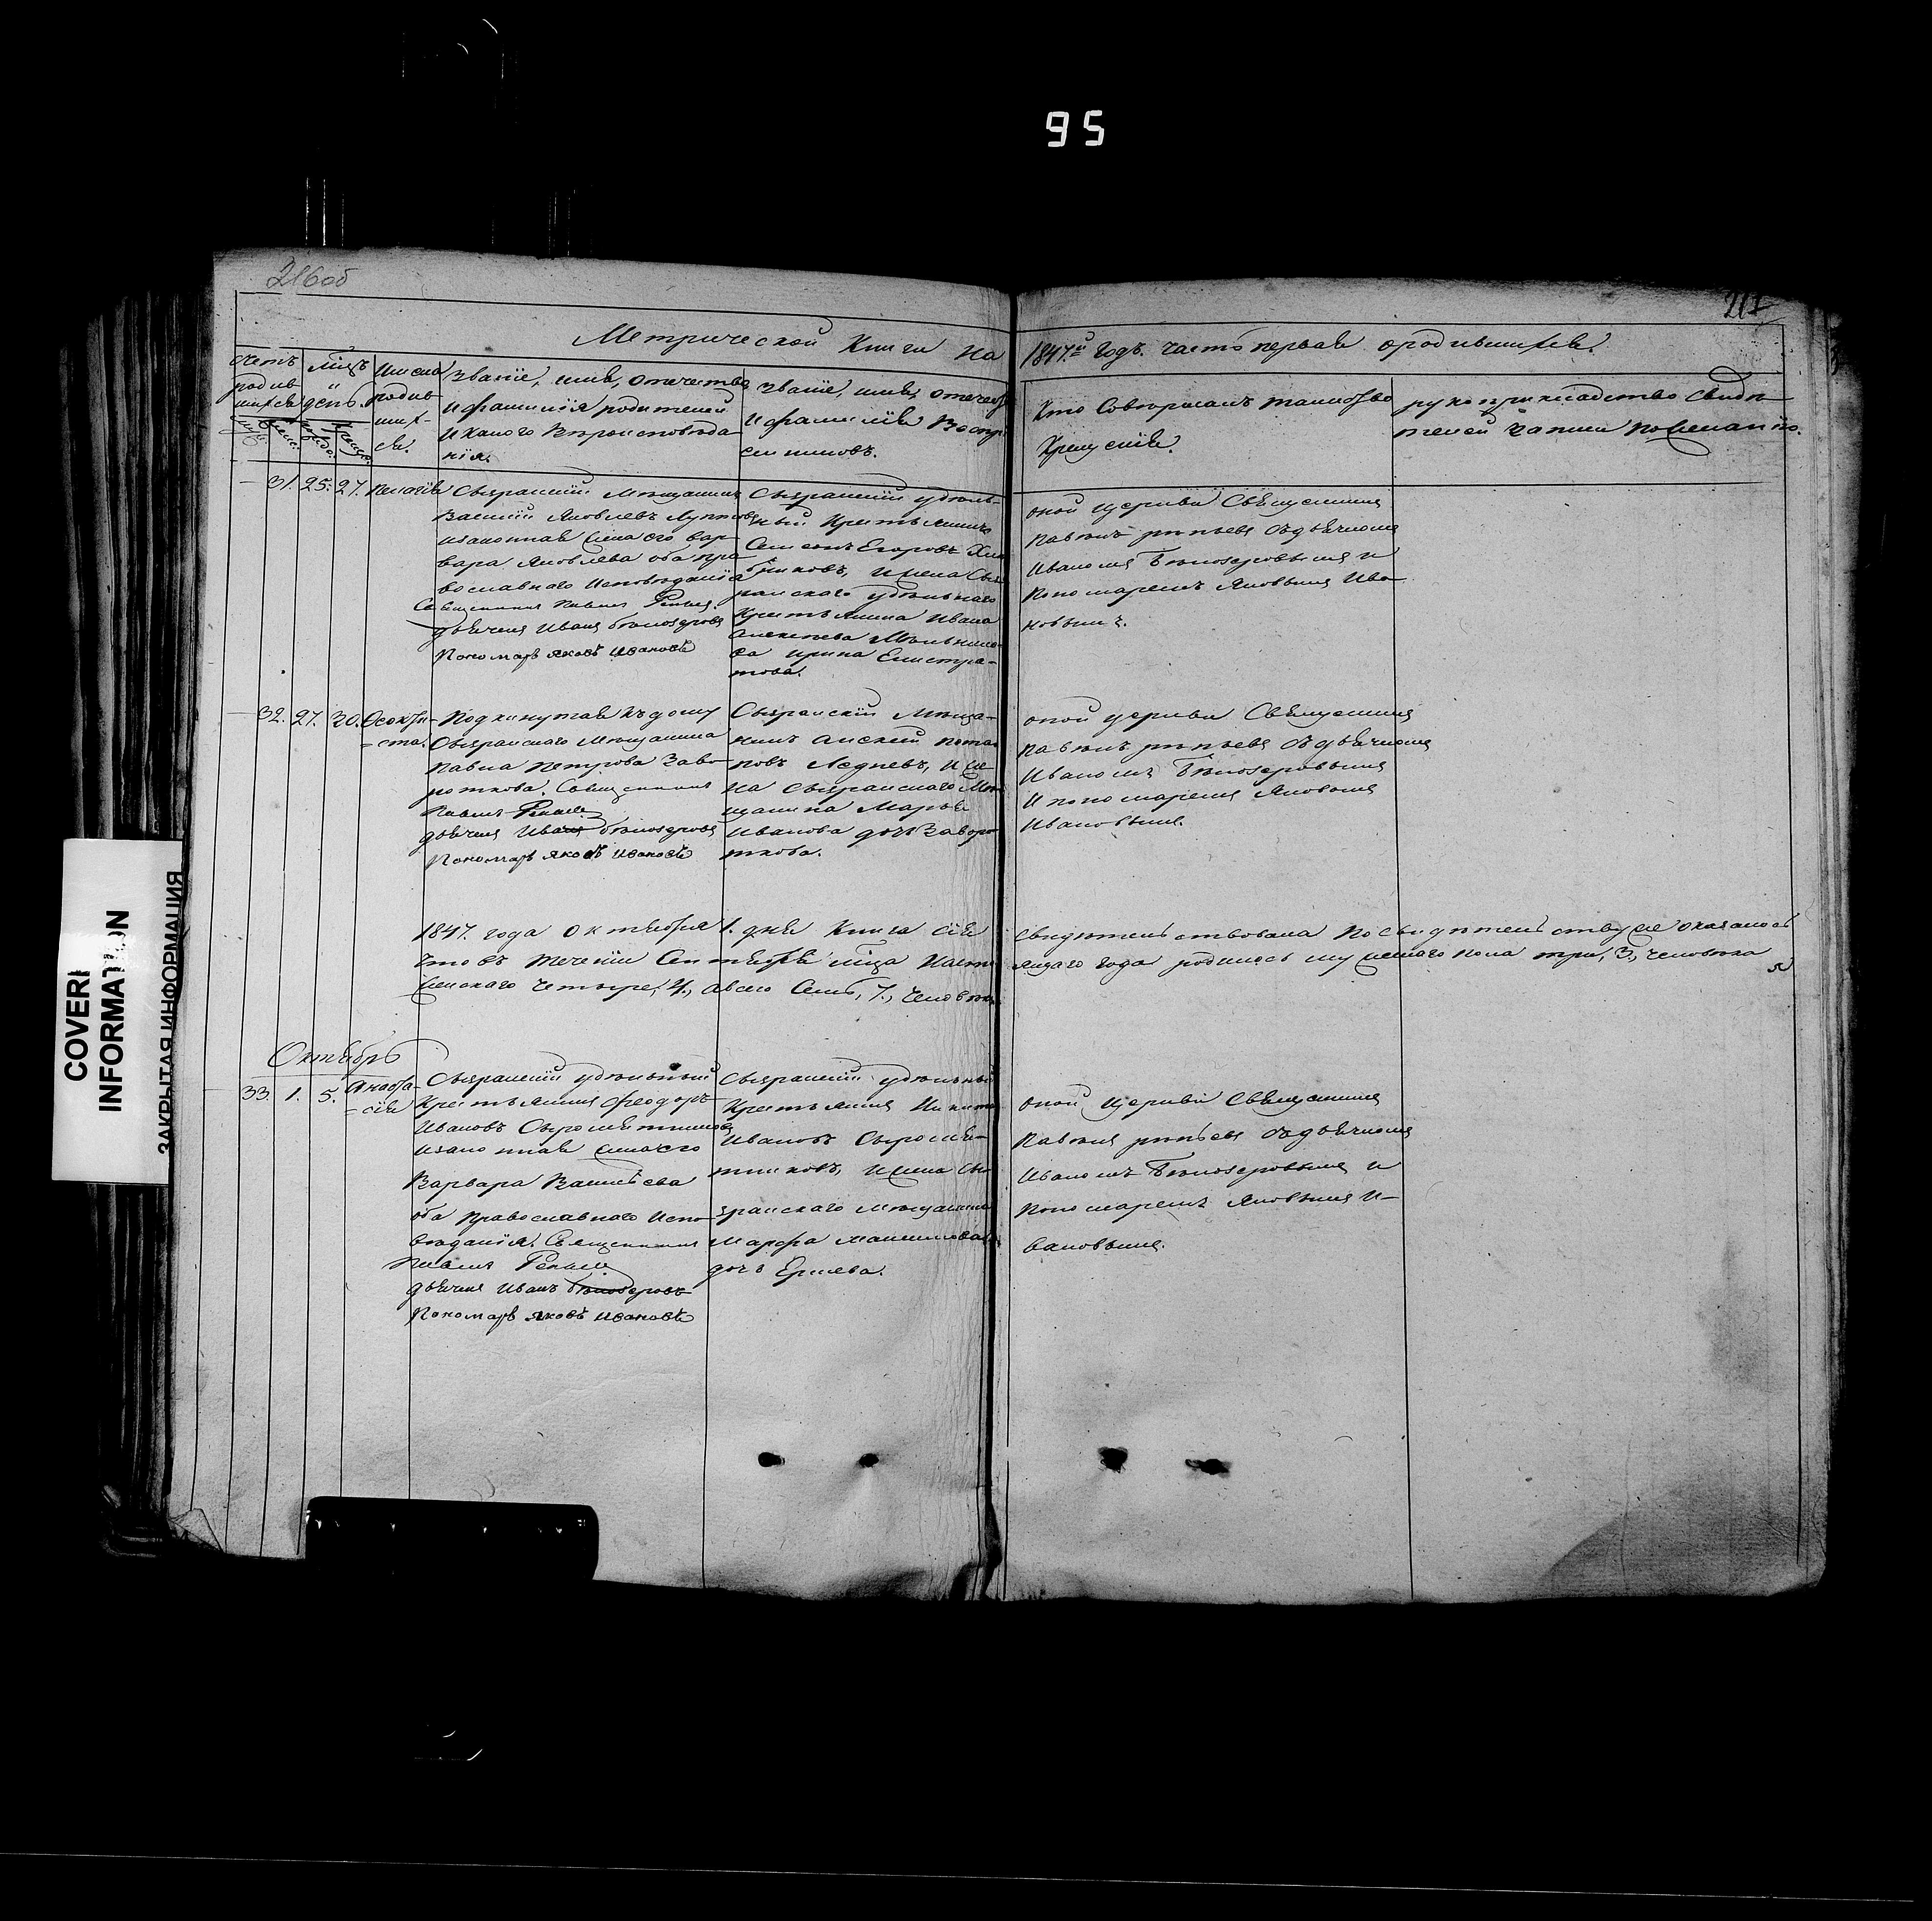 95
216об
217
Метрической Книги на 1847.й Годъ. часть первая о родившихся.
Счетъ родив шихся
Мѣсцъ и день.
Имена родив- ших- ся.
Званіе, имя, отечество
и фамилія родителей
и какого вѣроисповѣда
нія.
Званіе, имя, отечест
и фамилія Воспрі
емниковъ.
Кто Совершалъ таинство
Крещенія.
рукоприкладство свидѣ
телей записи по желанію.
31. 25. 27. Пелагія
Сызранскій мѣщанинъ
Василій Яковлевъ
и законная жена его Вар
вара Яковлева оба пра
вославнаго Исповѣданія
Священникъ Павелъ
дьяконъ Иванъ Бѣлозеровъ
Пономарь Яковъ Ивановъ
Сызранскій удѣль-
ный Крестьянинъ
Семенъ Егоровъ
и жена Сыз
ранского удѣльнаго
Крестьянина Ивана
Алексѣева Мѣльнико
ва Ирина Елистра-
това.
оной церкви Священникъ
Павелъ съ дьякономъ
Иваномъ Бѣлозеровымъ и
Пономаремъ Яковомъ Ива-
новымъ.
32. 27. 30. Ѳеокти-
-ста.
Подкинутая къ дому
Сызранскаго Мѣщанина
Павла Петрова Заво
роткова. Священникъ
Павелъ
дьяконъ Иванъ Бѣлозеровъ
Пономарь Яковъ Ивановъ
Сызранскій Мѣща-
нинъ Алексѣй Пота
повъ Ледневъ, и же
на Сызранскаго Мѣ
щанина Марья
Иванова дочь Заворо
ткова.
оной церкви Священникъ
Павелъ съ дьякономъ
Иваномъ Бѣлозеровымъ
и пономаремъ Яковомъ
Ивановымъ.
1847. года Октября 1. дня Книга сія свидѣтельствована по свидѣтельству же оказалось
что въ теченіи Сентября мѣсца насто ящаго года родилось мужескаго пола три, 3, человѣка
женскаго четыре, 4., а всего Семь, 7., человѣкъ
Октябрь
33. 1. 5. Анаста-
-сія
Сызранскій удѣльный
Крестьянинъ Феодоръ
Ивановъ Сыромятников
и законная жена его
Варвара Васильева
оба Православнаго Испо-
вѣданія. Священникъ
Павелъ
дьяконъ Иванъ Бѣлозеровъ
Пономарь Яковъ Ивановъ
Сызранскій удѣльный
Крестьянинъ Никита
Ивановъ Сыромя-
тниковъ, и жена Сы
зранскаго мѣщанина
Марфа
дочь Ершева.
оной Церкви Священникъ
Павелъ съ дьякономъ
Иваномъ Бѣлозеровымъ и
Пономаремъ Яковомъ И-
вановымъ.
COVERI
INFORMATION
ЗАКРЫТАЯ ИНФОРМАЦИЯ